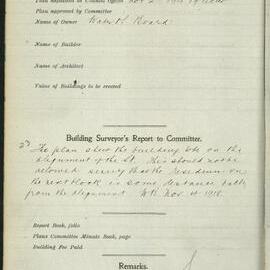 Plan submitted to Council Office Nov 2 1918
Plan approved by Committee
Name of Owner Water & S. Board
Name of Builder
Name of Architect
Value of Buildings to be erected
Building Surveyor's Report to Committee.
The plan shew the building to be on the
alignment of the St. This should not be
allowed seeing that the residence on
the next block is some distance back
from the alignment Nov 4 1918.
Report Book, folio
Plans Committee Minute Book, page
Building Fee Paid
Remarks.